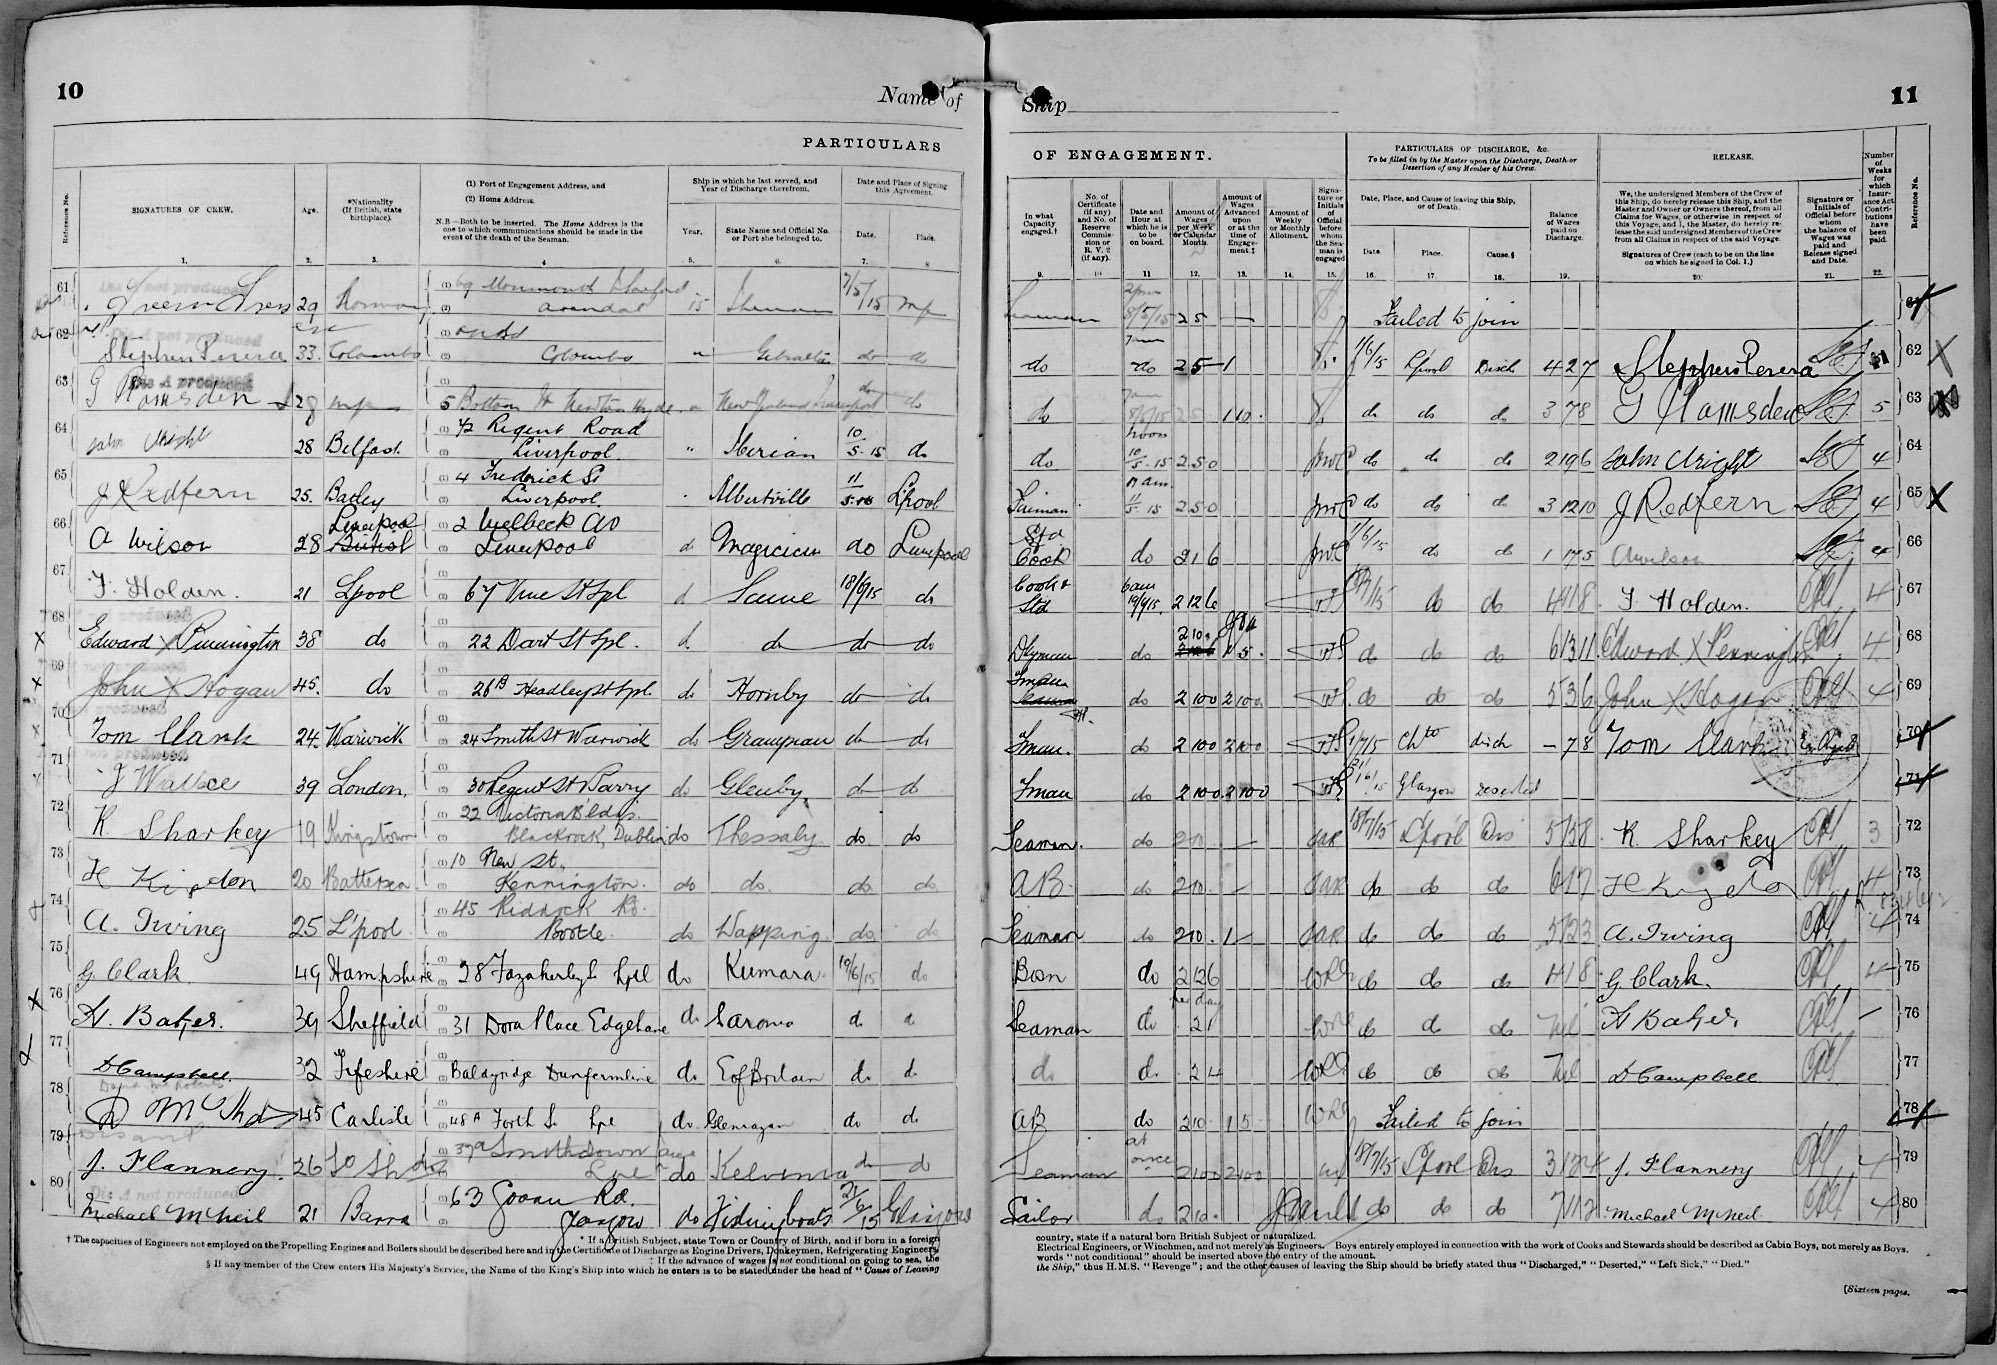 10
Name of
PARTICULARS
Reference No.
SIGNATURES OF CREW.
Age.
*Nationality (If British, state birthplace).
(1) Port of Engagement Address, and
(2) Home Address.
N.B.—Both to be inserted. The Home Address is the one to which communications should be made in the event of the death of the Seaman.
Ship in which he last served, and Year of Discharge therefrom.
Year.
State Name and Official No. or Port she belonged to.
Date and Place of Signing this Agreement.
Date.
Place.
1. 2. 3. 4 5. 6. 7. 8
61 29 Norway 15 7/5/15
62 Stephen Perera 33. Colombo Colombo " Gibraltar do do
63 G Ramsden 28 5 Bottom St Newton Hyde do
64 John Wright 28 Belfast 42 Regent Road Liverpool. " Iberian 10/5.15 do
65 J Redfern 25. Batley 4 Frederick St Liverpool Albertville 11/5.15 L'pool
66 A Wilson 28 Liverpool British 2 Welbeck Av Liverpool do Magician do Liverpool
67 F. Holden. 21 Lpool 67 Vine St Lpl d Same 18/6/15 do
68 Edward X Pennington 38 do 22 Dart St Lpl. d do do do
69 John X Hogan 45. do 26B Headley St Lpl do Hornby do do
70 Tom Clark 24 Warwick 24 Smith St Warwick do Grampian do do
71 J Wallace 39 London. 30 Regent St Barry do Glenby do do
72 K Sharkey 19 Kingstown 22 Victoria Bldgs. Blackrock, Dublin do Thessaly. do. do
73 H Kigdon 20 Battersea 10 New St. Kennington. do do. do. do
74 A. Irving 25 L'pool. 45 Riddock Rd. Bootle. do Wapping. do. do
75 G Clark 49 Hampshire 28 Fazakerley St Lpl do Kumara. 19/6/15 do
76 A. Baker. 39 Sheffield 31 Dora Place Edgehane do Saronia do d
77 D Campbell. 32 Fifeshire Baldgridge Dunfermline do E of Britain do. do
78 45 Carlisle 48A Forth St Lpl do. Glenragan do do
79 J. Flannery. 26 So Shds 37a Smithdown Lane Lpl do Kelvinia do do
80 Michael McNeil 21 Barra 63 Govan Rd. Glasgow do Fishing boats 21/6/15 Glasgow
Dis A not produced
† The capacities of Engineers not employed on the Propelling Engines and Boilers should be described here and in the Certificate of Discharge as Engine Drivers, Donkeymen, Refrigerating Engineers,
* If a British Subject, state Town or Country of Birth, and if born in a foreign
‡ If the advance of wages is not conditional on going to sea, the
§ If any member of the Crew enters His Majesty's Service, the Name of the King's Ship into which he enters is to be stated under the head of "Cause of Leaving
11
Ship
OF ENGAGEMENT.
In what Capacity engaged.†
No. of Certificate (if any) and No. of Reserve Commission or R. V. 2 (if any).
Date and Hour at which he is to be on board.
Amount of Wages per Week or Calendar Month.
Amount of Wages Advanced upon or at the time of Engagement.‡
Amount of Weekly or Monthly Allotment.
Signature or Initials of Official before whom the Seaman is engaged
PARTICULARS OF DISCHARGE, &c.
To be filled in by the Master upon the Discharge, Death or Desertion of any Member of his Crew.
Date, Place, and Cause of leaving this Ship, or of Death.
Date.
Place.
Cause.§
Balance of Wages paid on Discharge.
RELEASE.
We, the undersigned Members of the Crew of this Ship, do hereby release this Ship, and the Master and Owner or Owners thereof, from all Claims for Wages, or otherwise in respect of this Voyage, and I, the Master, do hereby release the said undersigned Members of the Crew from all Claims in respect of the said Voyage.
Signatures of Crew (each to be on the line on which he signed in Col. 1.)
Signature or Initials of Official before whom the balance of Wages was paid and Release signed and Date.
Number of Weeks for which Insurance Act Contributions have been paid.
Reference No.
9. 10 11 12. 13. 14. 15. 16. 17. 18. 19. 20. 21. 22.
2pm 8/5/15 25 Failed to join 61
do 7am do 25 1 1/6/15 L'pool Disch 4 2 7 Stephen Perera 62
do 7am 25 1 10. do do do 3 7 8 G Ramsden 5 63
do noon 10/5.15 2.5.0 do do do 2 19 6 John Wright 4 64
Fireman 11/5.15 2 5 0 do do do 3 12 10 J Redfern 4 65
Std Cook do 2 1 6 1/6/15 do do 1 7 5 A Wilson 4 66
Cook & Std 6am 19/6/15. 2 12 6 do do F Holden. 4 67
do 2 10. 1 5. do do do 6 13 11 Edward X Pennington 4 68
Fman do 2 10 0 2 10 0. do do do 5 3 6 John X Hogan 4 69
Fman. do 2 10 0 2 10 0 1/7/15 Chto disch – 7 8 Tom Clark 70
Fman do 2 10 0. 2 10 0 Glasgow Deserted 71
Seaman. do 2 10 — 18/7/15 L'pool Dis K. Sharkey 3 72
AB. do 2 10. — do do do 4 73
Seaman do 2 10. 1 do do do A. Irving 4 74
Bosn do 2 12 6 do do do G Clark. 4 75
Seaman per day do 2 1 do do do Nil A Baker. – 76
do do. 2 4 do do do Nil D Campbell 77
AB do 2 10 1 5 Failed to join 78
Seaman at once 2 10 0 2 10 0 18/7/15 L'pool Dis J. Flannery 4 79
Sailor do 2 10. do do do Michael McNeil. 4 80
country, state if a natural born British Subject or naturalized.
Electrical Engineers, or Winchmen, and not merely as Engineers. Boys entirely employed in connection with the work of Cooks and Stewards should be described as Cabin Boys, not merely as Boys.
words "not conditional" should be inserted above the entry of the amount.
the Ship," thus H.M.S. "Revenge"; and the other causes of leaving the Ship should be briefly stated thus "Discharged," "Deserted," "Left Sick," "Died."
[Sixteen pages.